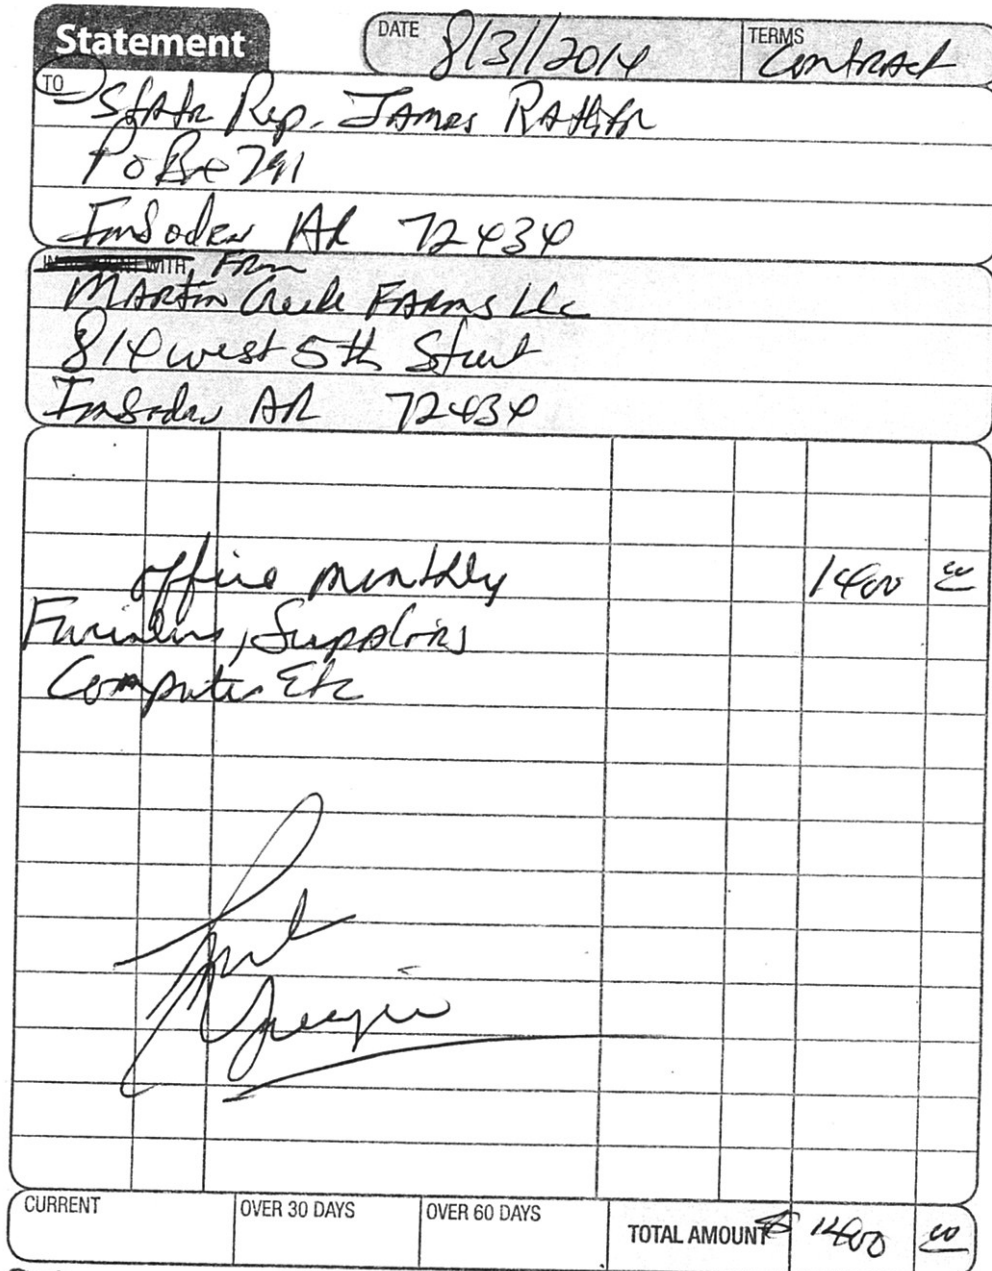 Statement
DATE 8/31/2014
TERMS Contract
TO
State Rep. James
PO Box 791
Imboden AR 72434
WITH From
Martin Creek Farms LLC
814 west 5th Street
Imboden AR 72434
office monthly 1400 00
Supplies
Computer Etc
CURRENT OVER 30 DAYS OVER 60 DAYS TOTAL AMOUNT $ 1400 00